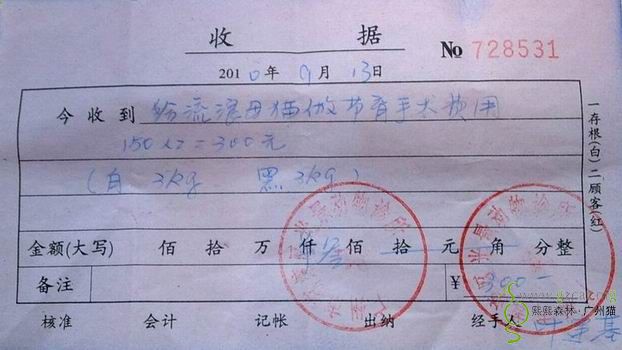 收 据
№ 728531
2010年9月13日
今收到 给流浪母猫做节育手术费用
150×2=300元
(白 3kg 黑 3kg)
金额(大写) 佰 拾 万 仟 叁 佰 拾 元 角 分整
备注 ¥ 300—
核准 会计 记帐 出纳 经手人
一存根(白)二顾客(红)
熙熙森林·广州猫